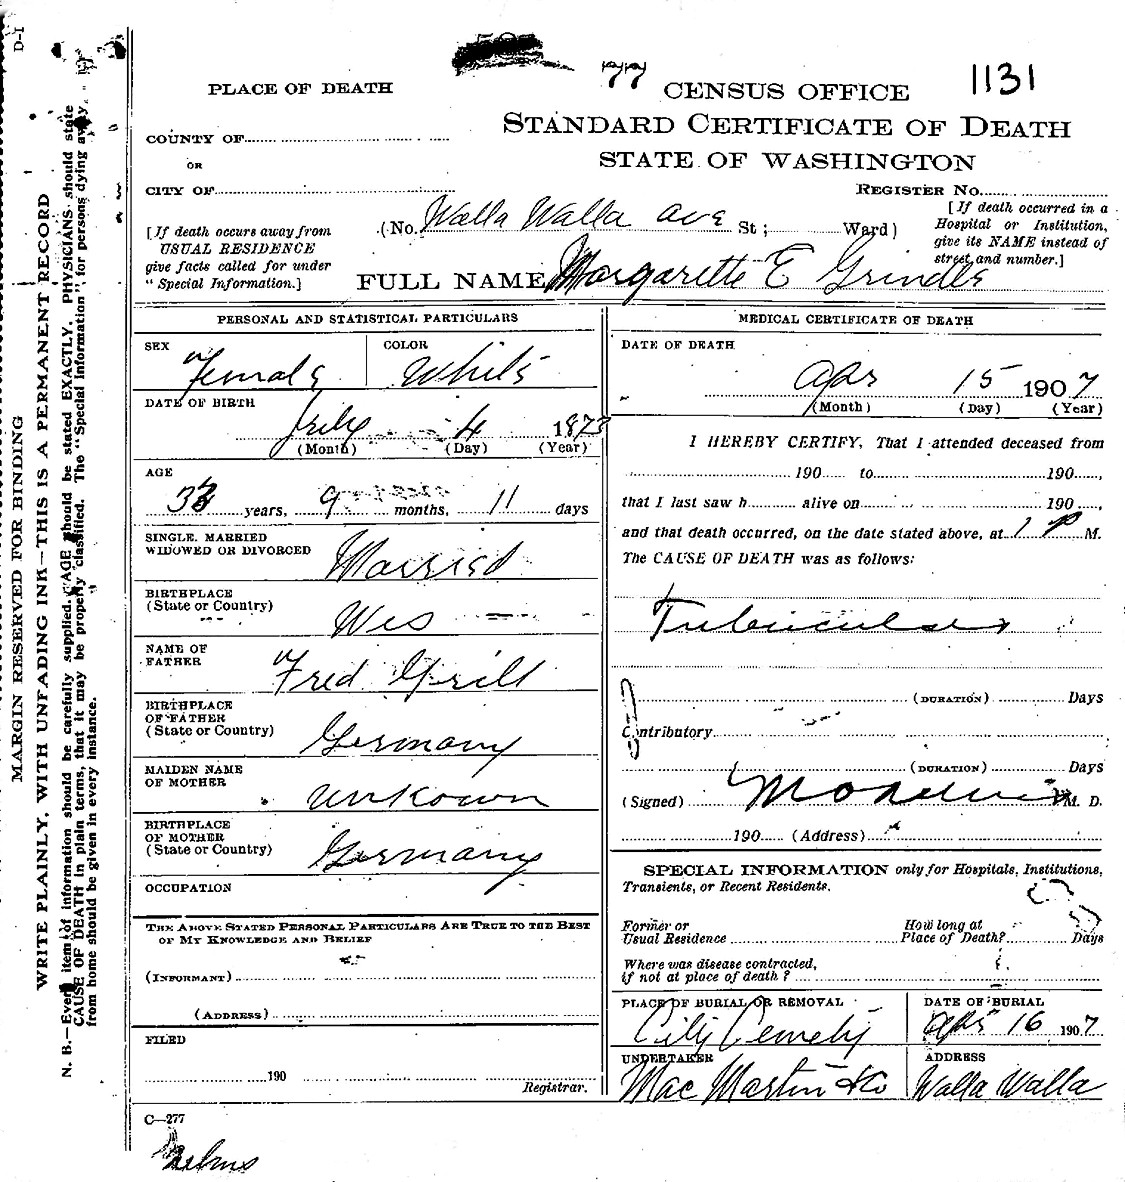 D-I
MARGIN RESERVED FOR BINDING
WRITE PLAINLY, WITH UNFADING INK—THIS IS A PERMANENT RECORD
N. B.—Every item of information should be carefully supplied. AGE should be stated EXACTLY. PHYSICIANS should state
CAUSE OF DEATH in plain terms, that it may be properly classified. The "Special Information" for persons dying away
from home should be given in every instance.
77
1131
PLACE OF DEATH
CENSUS OFFICE
STANDARD CERTIFICATE OF DEATH
STATE OF WASHINGTON
COUNTY OF
OR
CITY OF
REGISTER No.
[If death occurs away from
USUAL RESIDENCE
give facts called for under
"Special Information.]
(No. Walla Walla ave St; Ward)
[If death occurred in a
Hospital or Institution,
give its NAME instead of
street and number.]
FULL NAME Margarette E Grindle
PERSONAL AND STATISTICAL PARTICULARS
SEX Female
COLOR White
DATE OF BIRTH
July 4 1873
(Month) (Day) (Year)
AGE
33 years, 9 months, 11 days
SINGLE, MARRIED
WIDOWED OR DIVORCED Married
BIRTHPLACE
(State or Country) Wis
NAME OF
FATHER Fred Grill
BIRTHPLACE
OF FATHER
(State or Country) Germany
MAIDEN NAME
OF MOTHER unkown
BIRTHPLACE
OF MOTHER
(State or Country) Germany
OCCUPATION
THE ABOVE STATED PERSONAL PARTICULARS ARE TRUE TO THE BEST
OF MY KNOWLEDGE AND BELIEF
(INFORMANT)
(ADDRESS)
FILED
190
Registrar.
MEDICAL CERTIFICATE OF DEATH
DATE OF DEATH
Apr 15 1907
(Month) (Day) (Year)
I HEREBY CERTIFY, That I attended deceased from
190 to 190,
that I last saw h alive on 190,
and that death occurred, on the date stated above, at 1 P M.
The CAUSE OF DEATH was as follows:
(DURATION) Days
Contributory
(DURATION) Days
(Signed) M. D.
190 (Address)
SPECIAL INFORMATION only for Hospitals, Institutions,
Transients, or Recent Residents.
Former or
Usual Residence
How long at
Place of Death? Days
Where was disease contracted,
if not at place of death?
PLACE OF BURIAL OR REMOVAL
City Cemety
DATE OF BURIAL
Apr 16 1907
UNDERTAKER
Mac Martin & Co
ADDRESS
Walla Walla
C—277